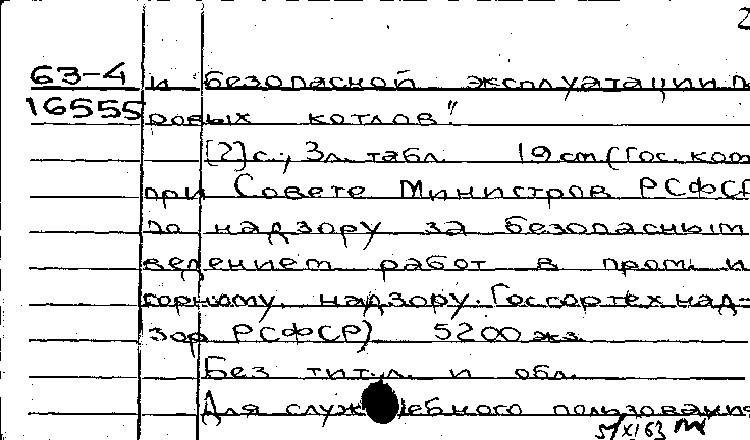 2
63-4 и безопасной эксплуатации па
16555 ровых котлов".
[2]с., 3л. табл. 19 см (Гос. ком
при Совете Министров РСФСР
по надзору за безопасным
ведением работ в пром. и
горному надзору. Госгортехнад-
зор РСФСР) 5200 экз.
Без тит.л. и обл.
Для служебного пользования
5/XI 63